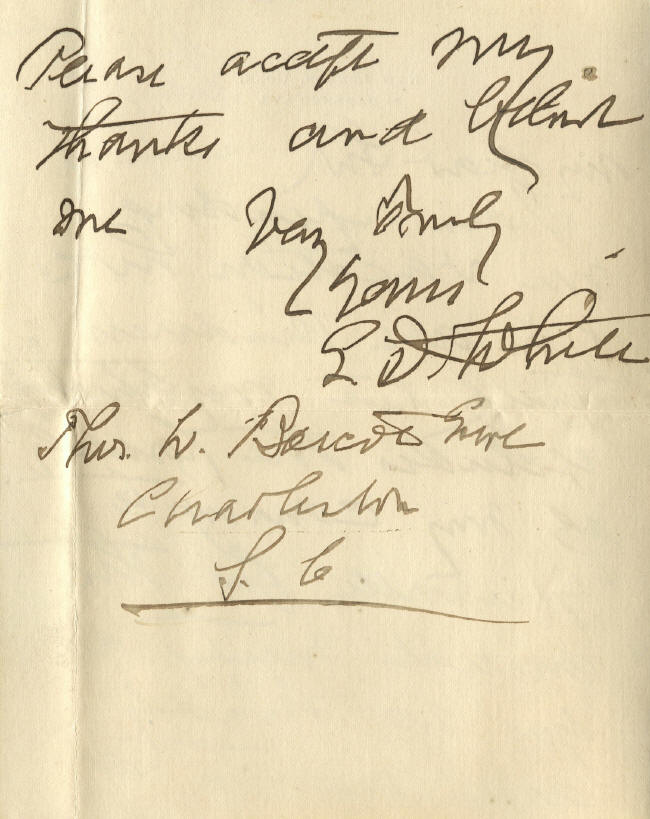 Please accept my
thanks and believe
me Very truly
Yours
E D White
Thos. W. Bacot Esqre
Charleston
S. C